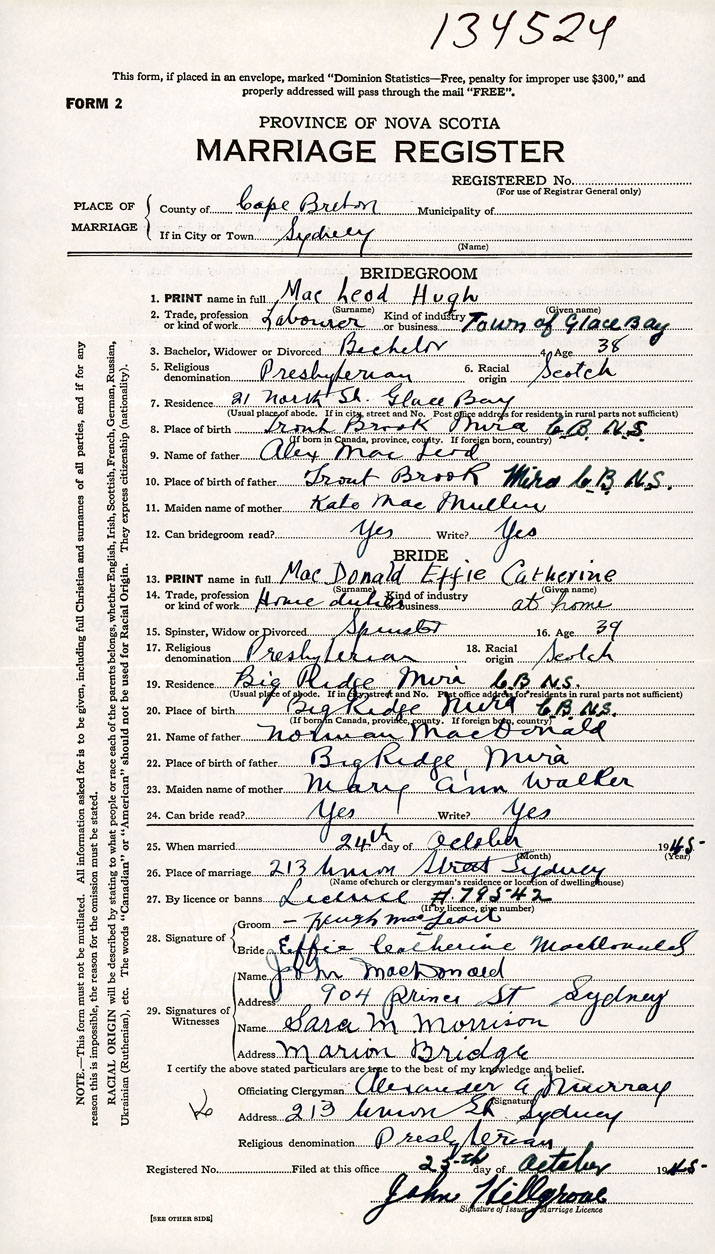 134524
This form, if placed in an envelope, marked "Dominion Statistics—Free, penalty for improper use $300," and
properly addressed will pass through the mail "FREE".
FORM 2
PROVINCE OF NOVA SCOTIA
MARRIAGE REGISTER
REGISTERED No.
(For use of Registrar General only)
PLACE OF MARRIAGE
County of Cape Breton Municipality of
If in City or Town Sydney
(Name)
BRIDEGROOM
1. PRINT name in full Mac Leod Hugh
(Surname) (Given name)
2. Trade, profession or kind of work Labourer Kind of industry or business Town of Glace Bay
3. Bachelor, Widower or Divorced Bachelor 4. Age 38
5. Religious denomination Presbyterian 6. Racial origin Scotch
7. Residence 21 North St. Glace Bay
(Usual place of abode. If in city, street and No. Post office address for residents in rural parts not sufficient)
8. Place of birth Trout Brook Mira C.B. N.S.
(If born in Canada, province, county. If foreign born, country)
9. Name of father Alex Mac Leod
10. Place of birth of father Trout Brook Mira C.B. N.S.
11. Maiden name of mother Kate Mac Mullin
12. Can bridegroom read? Yes Write? Yes
BRIDE
13. PRINT name in full Mac Donald Effie Catherine
(Surname) (Given name)
14. Trade, profession or kind of work Home duties Kind of industry or business at home
15. Spinster, Widow or Divorced Spinster 16. Age 39
17. Religious denomination Presbyterian 18. Racial origin Scotch
19. Residence Big Ridge Mira C.B. N.S.
(Usual place of abode. If in city, street and No. Post office address for residents in rural parts not sufficient)
20. Place of birth Big Ridge Mira C.B. N.S.
(If born in Canada, province, county. If foreign born, country)
21. Name of father Norman MacDonald
22. Place of birth of father Big Ridge Mira
23. Maiden name of mother Mary Ann Walker
24. Can bride read? Yes Write? Yes
25. When married 24th day of October 1945
(Month) (Year)
26. Place of marriage 213 Union Street Sydney
(Name of church or clergyman's residence or location of dwelling house)
27. By licence or banns License #79542
(If by licence, give number)
28. Signature of
Groom Hugh MacLeod
Bride Effie Catherine MacDonald
29. Signatures of Witnesses
Name John MacDonald
Address 904 Prince St Sydney
Name Sara M Morrison
Address Marion Bridge
I certify the above stated particulars are true to the best of my knowledge and belief.
Officiating Clergyman Alexander A Murray
(Signature)
Address 213 Union St Sydney
Religious denomination Presbyterian
Registered No. Filed at this office 25th day of October 1945
John Hillgrove
Signature of Issuer of Marriage Licence
[SEE OTHER SIDE]
NOTE.—This form must not be mutilated. All information asked for is to be given, including full Christian and surnames of all parties, and if for any
reason this is impossible, the reason for the omission must be stated.
RACIAL ORIGIN will be described by stating to what people or race each of the parents belongs, whether English, Irish, Scottish, French, German, Russian,
Ukrainian (Ruthenian), etc. The words "Canadian" or "American" should not be used for Racial Origin. They express citizenship (nationality).